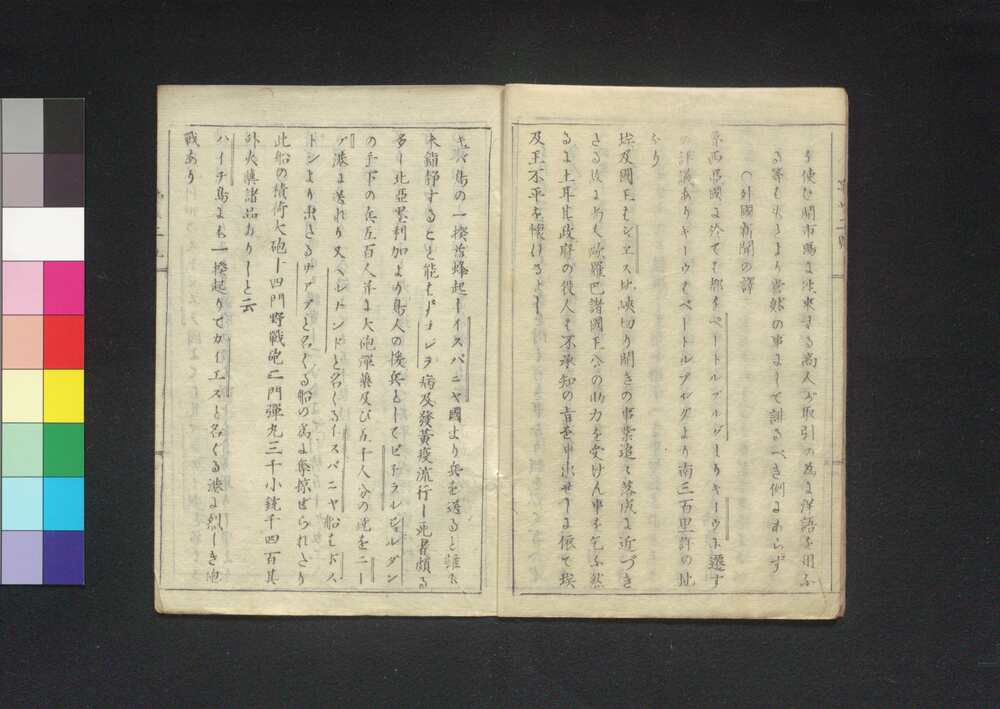 を使ひ開市場に往来する商人が取引の為に洋語を用ふ
る等も火より当然の事にして誹るべき例にあらず
○外國新聞の譯
魯西亞國に於ても都をペートルブルグよりキーウに遷す
の評議ありキーウはペートルブルグより南三百里許の地
なり
埃及國王もシエス地峡切り開きの事業追々落成に近づき
さる故に為く歐羅巴諸國王公の助力を受けん事を乞ふ然
るに土耳其政府の役人も不承知の旨を申出せしに依て埃
及王不平を懐けるよし
キュバ島の一揆皆蜂起しイスパニヤ國より兵を送ると雖た
未鎮静すること能はずコレヲ病及發黃疫流行し死者頗る
多し北亞墨利加より島人の援兵として ジヨルダン
の手下の兵五百人并に大砲彈藥及び五千人分の 𛀁をニー
プ港に送れり又ヘレドンドと名くるイスパニヤ船もドス
トンより出きる と名くる船の為に奪掠せられたり
此船の積荷大砲十四門野戰砲二門彈丸三千小銃千四百其
外火藥諸品ありしと云
ハイチ島にも一揆起りてカイエスと名くる港に烈しき砲
戰あり